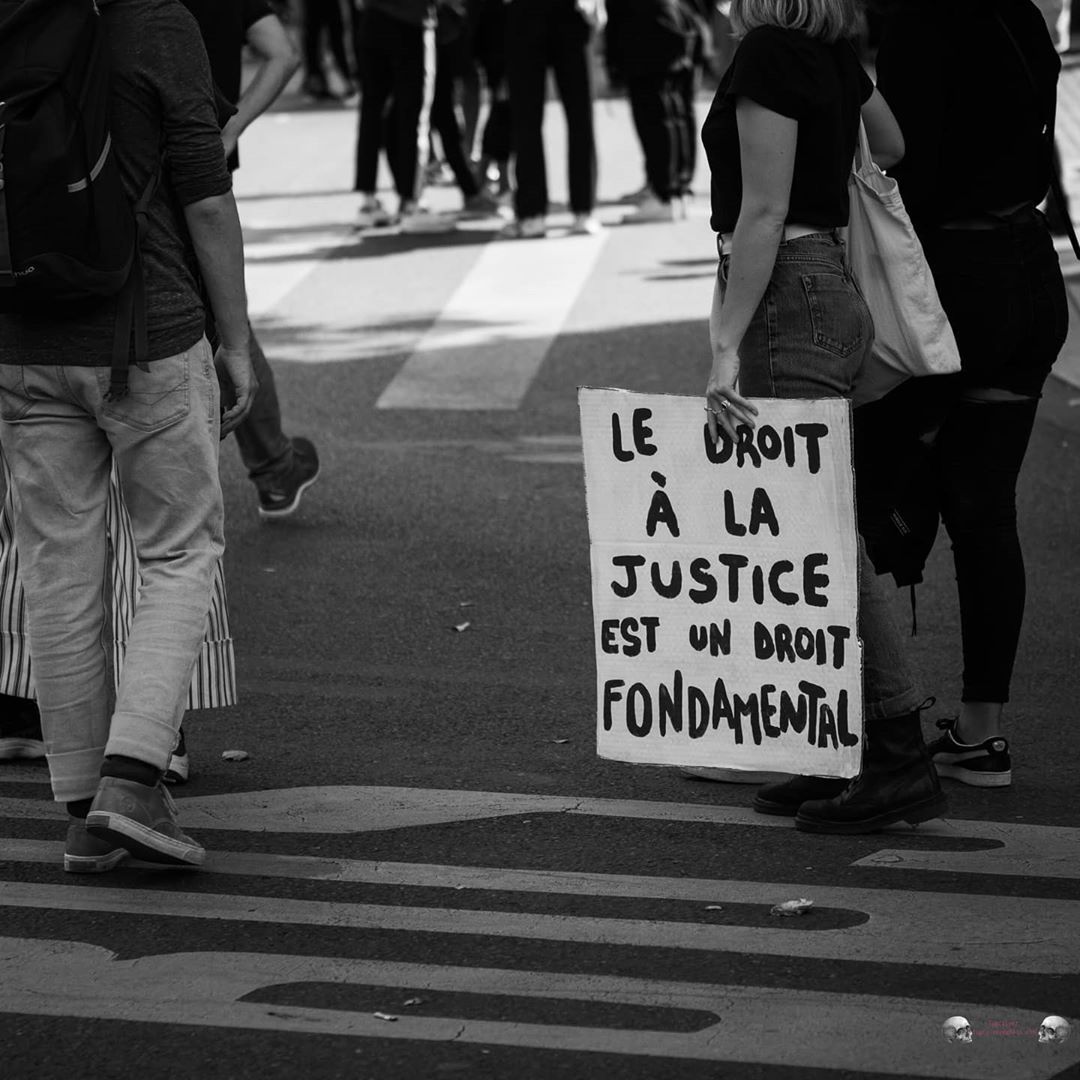 LE DROIT
À LA
JUSTICE
EST UN DROIT
FONDAMENTAL